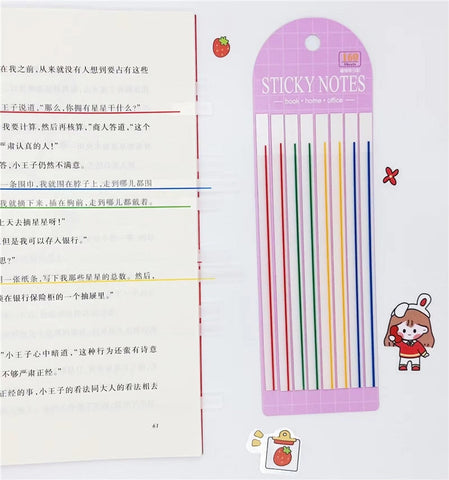 在我之前，从来就没有人想到要占有这些
王子说道，“那么，你拥有星星干什么？”
我要计算，然后再核算，”商人答道，“这个
严肃认真的人！”
答，小王子仍然不满意。
一条围巾，我就围在脖子上，走到哪儿都围
我就摘下来，插在胸前，走到哪儿都戴着。
上天去摘星星呀！”
但是我可以存人银行。”
思？”
用一张纸条，写下我那些星星的总数。然后，
锁在银行保险柜的一个抽屉里。”
”小王子心中暗道，“这种行为还蛮有诗意
不够严肃正经。”
正经的事，小王子的看法同大人的看法相去
61
160
Sheets
STICKY NOTES
book·home·office